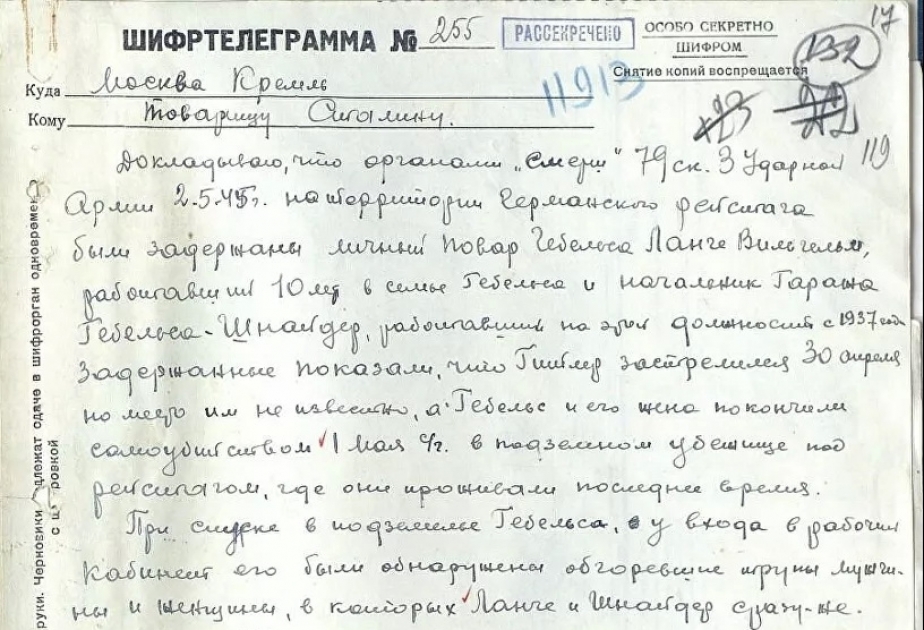 17
ШИФРТЕЛЕГРАММА № 255
РАССЕКРЕЧЕНО
ОСОБО СЕКРЕТНО
ШИФРОМ
Снятие копий воспрещается
132
Куда Москва Кремль
11913
Кому Товарищу Сталину.
119
Докладываю, что органами „Смерш" 79 ск. 3 Ударной
Армии 2.5.45г. на территории Германского рейстага
были задержаны личный повар Гебельса Ланге Вильгельм,
работавший 10 лет в семье Гебельса и начальник Гаража
Гебельса-Шнайдер, работавший на этой должности с 1937 года
Задержанные показали, что Гитлер застрелился 30 апреля
но место им не известно, а Гебельс и его жена покончили
самоубийством 1 Мая с/г. в подземном убежище под
рейстагом, где они проживали последнее время.
При спуске в подземелье Гебельса, у входа в рабочий
кабинет его были обнаружены обгоревшие трупы мужчи-
ны и женщины, в которых Ланге и Шнайдер сразу-же.
руки. Черновики длежат одаче в шифрорган одновремен
с ш ровкой